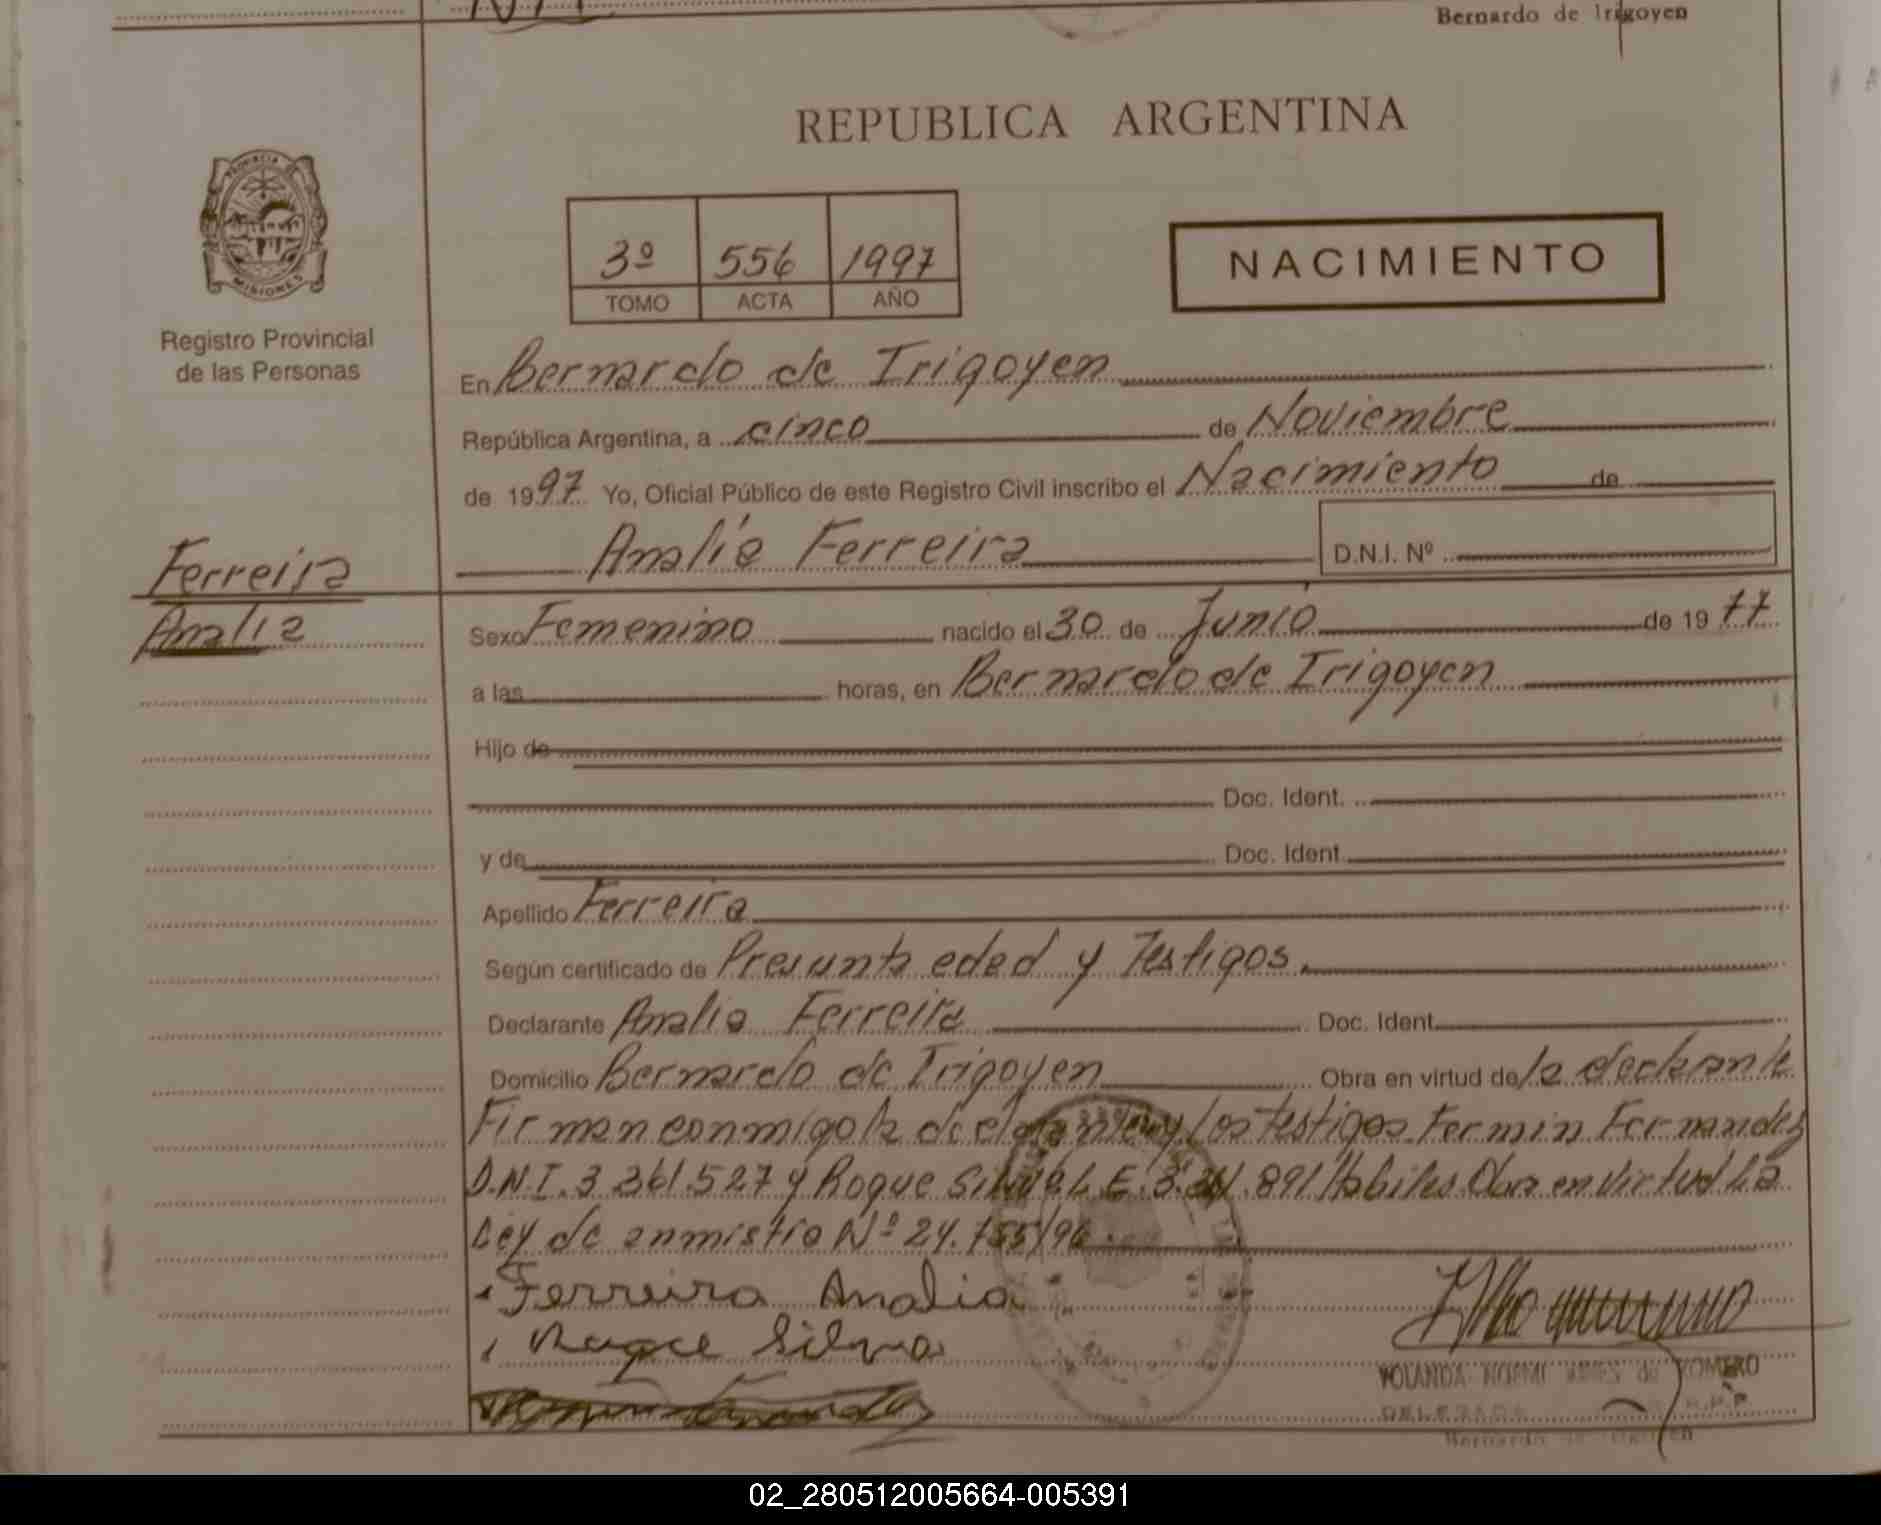 Bernardo de Irigoyen
REPUBLICA ARGENTINA
PROVINCIA DE
MISIONES
Registro Provincial
de las Personas
3º 556 1997
TOMO ACTA AÑO
NACIMIENTO
En Bernardo de Irigoyen
República Argentina, a cinco de Noviembre
de 1997 Yo, Oficial Público de este Registro Civil inscribo el Nacimiento de
Analía Ferreira D.N.I. Nº
Ferreira
Analia
Sexo Femenino nacido el 30 de Junio de 1977
a las horas, en Bernardo de Irigoyen
Hijo de
Doc. Ident.
y de Doc. Ident.
Apellido Ferreira
Según certificado de Presunta edad y Testigos.
Declarante Analia Ferreira Doc. Ident.
Domicilio Bernardo de Irigoyen Obra en virtud de la declarante
Firman conmigo la declarante y los testigos Fermin Fernandez
D.N.I. 3 361.527 y Roque Silva L.E. 891 Habiles Obra en virtud La
Ley de anmistia Nº 24.755/96
Ferreira Analia
Roque Silva
YOLANDA NOEMI de ROMERO
DELEGADA R.P.P.
Bernardo de Irigoyen
02_280512005664-005391